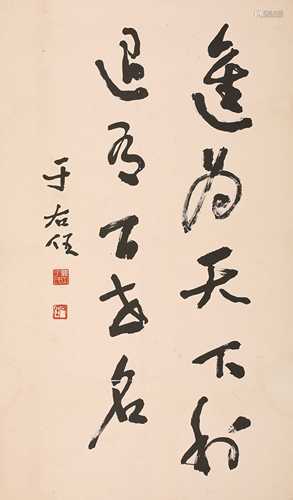 進為天下利
退有百世名
于右任